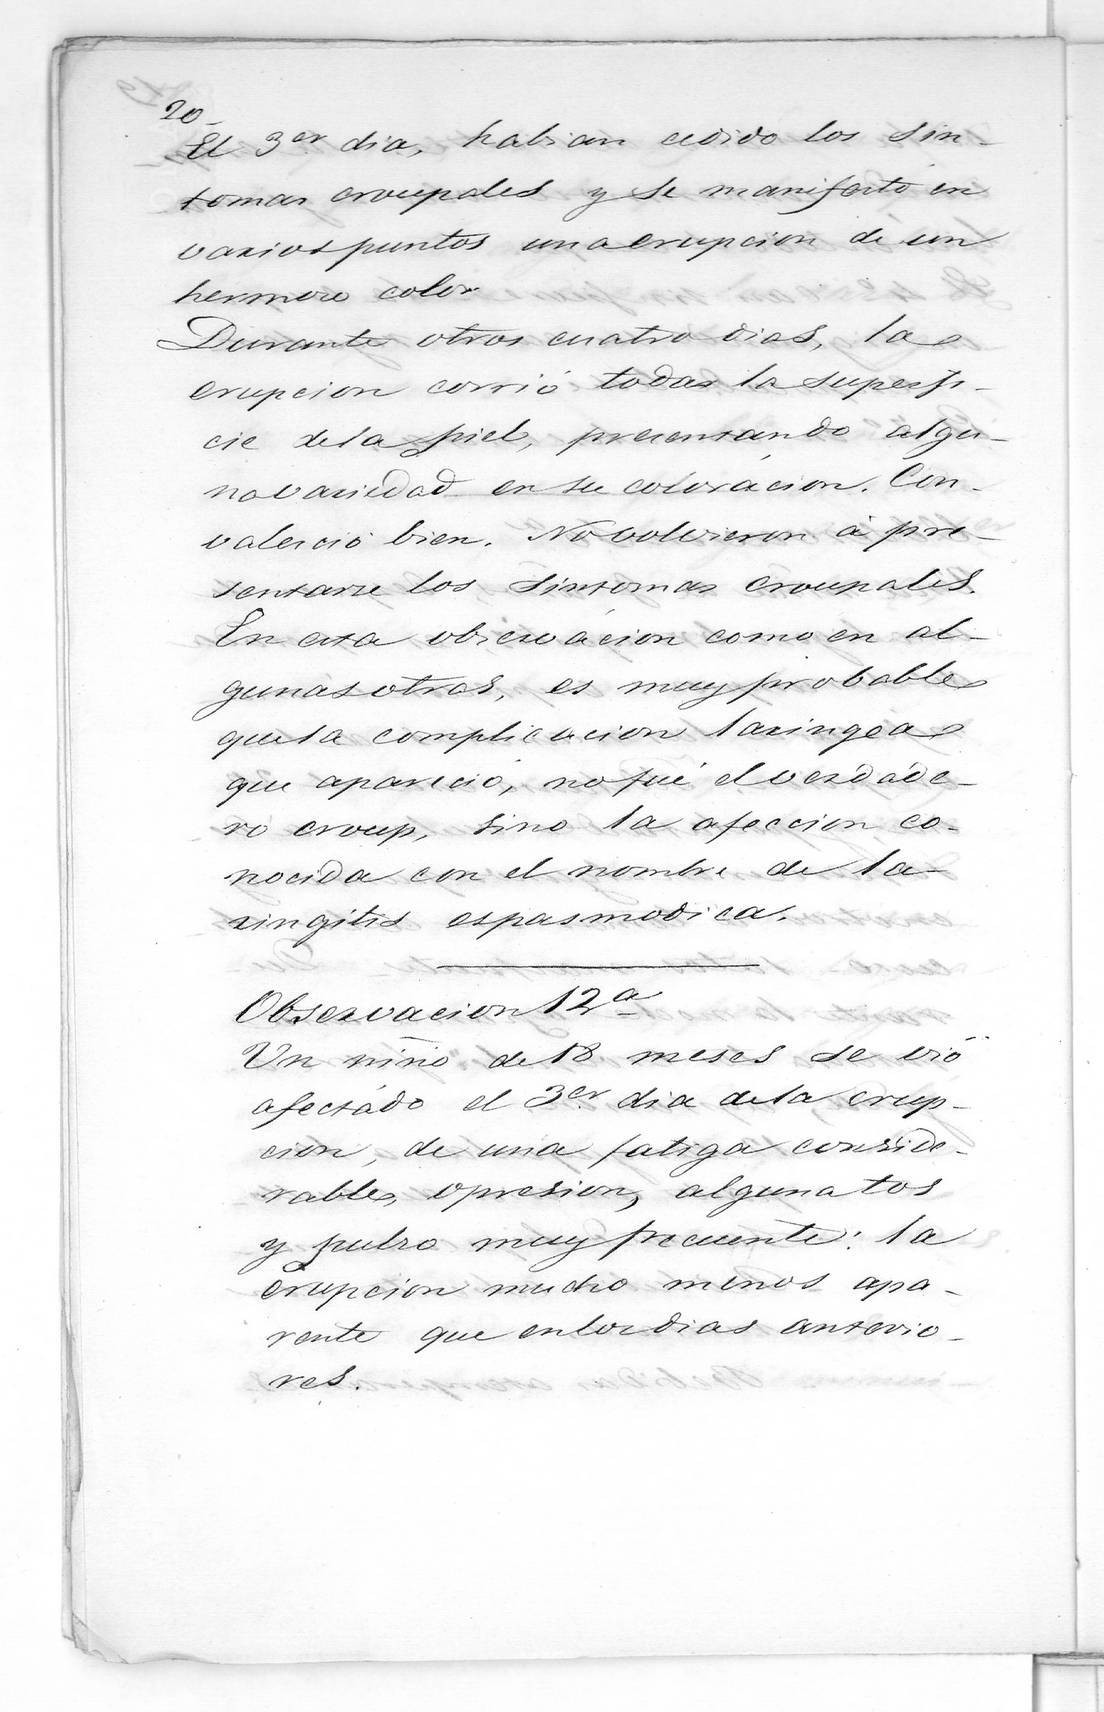 20_
El 3er dia, habian cedido los sin-
tomas croupales y se manifestó en
varios puntos una erupcion de un
hermoso color
Durante otros cuatro dias, la
erupcion corrió todas la superfi-
cie de la piel, presentando algu-
na variedad en su coloracion. Con-
valeció bien. No volvieron á pre-
sentarse los sintomas croupales.
En esta observacion como en al-
gunas otras, es muy probable
que la complicacion laringea
que apareció, no fué el verdade-
ro croup, sino la afeccion co-
nocida con el nombre de la-
ringitis espasmodica.
Observacion 12a
Un niño de 18 meses se vió
afectado el 3er dia de la erup-
cion, de una fatiga conside-
rable, opresion, alguna tos
y pulso muy frecuente: la
erupcion mucho menos apa-
rente que en los dias anterio-
res.